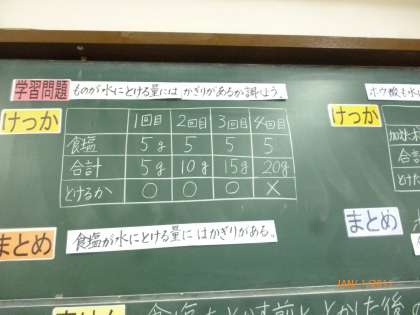 学習問題 ものが水にとける量には かぎりがあるか調べよう。
けっか
1回目 2回目 3回目 4回目
食塩 5g 5 5 5
合計 5g 10g 15g 20g
とけるか ○ ○ ○ ×
まとめ
食塩が水にとける量に はかぎりがある。
ホウ酸も水
けっか
合計
とけた
まとめ